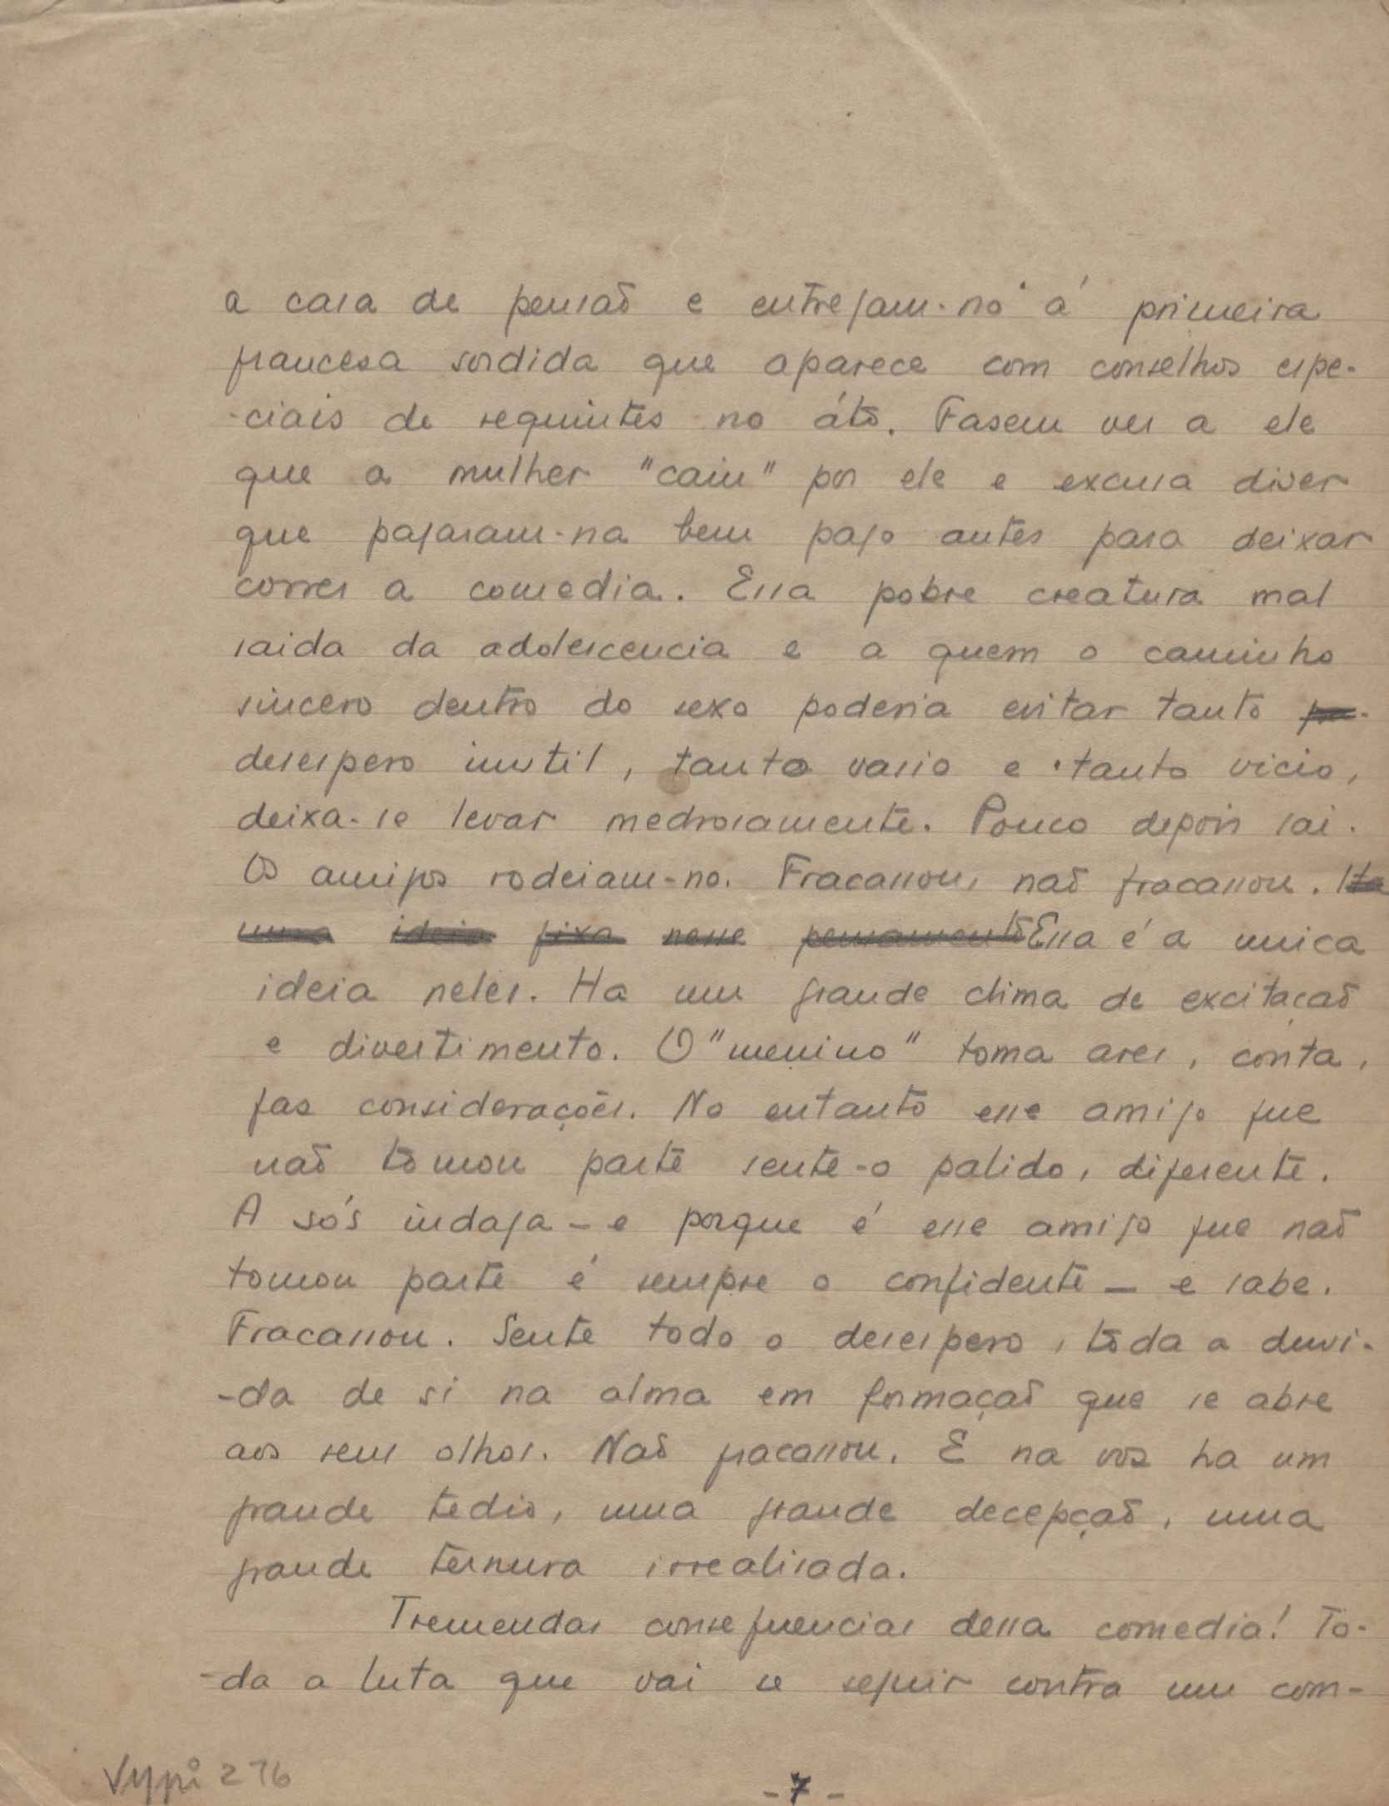 a casa de pensaõ e entregam-no á primeira
francesa sordida que aparece com conselhos espe-
-ciais de requintes no áto. Fasem ver a ele
que a mulher "caiu" por ele e excusa diser
que pagaram-na bem pago antes para deixar
correr a comedia. Essa pobre creatura mal
saida da adolescencia e a quem o caminho
sincero dentro do sexo poderia evitar tanto
desespero inutil, tanto vasio e tanto vicio,
deixa-se levar medrosamente. Pouco depois sai.
Os amigos rodeiam-no. Fracassou, naõ fracassou. Ha
uma ideia fixa nesse pensamento Essa é a unica
ideia neles. Ha um grande clima de excitaçaõ
e divertimento. O "menino" toma ares, conta,
fas considerações. No entanto esse amigo que
naõ tomou parte sente-o palido, diferente.
A sós indaga - e porque é esse amigo que naõ
tomou parte é sempre o confidente - e sabe.
Fracassou. Sente todo o desespero, tôda a duvi-
-da de si na alma em formaçaõ que se abre
aos seus olhos. Naõ fracassou. E na vos ha um
grande tedio, uma grande decepçaõ, uma
grande ternura irrealisada.
Tremendas consequencias dessa comedia! To-
-da a luta que vai se seguir contra um com-
276
-7-